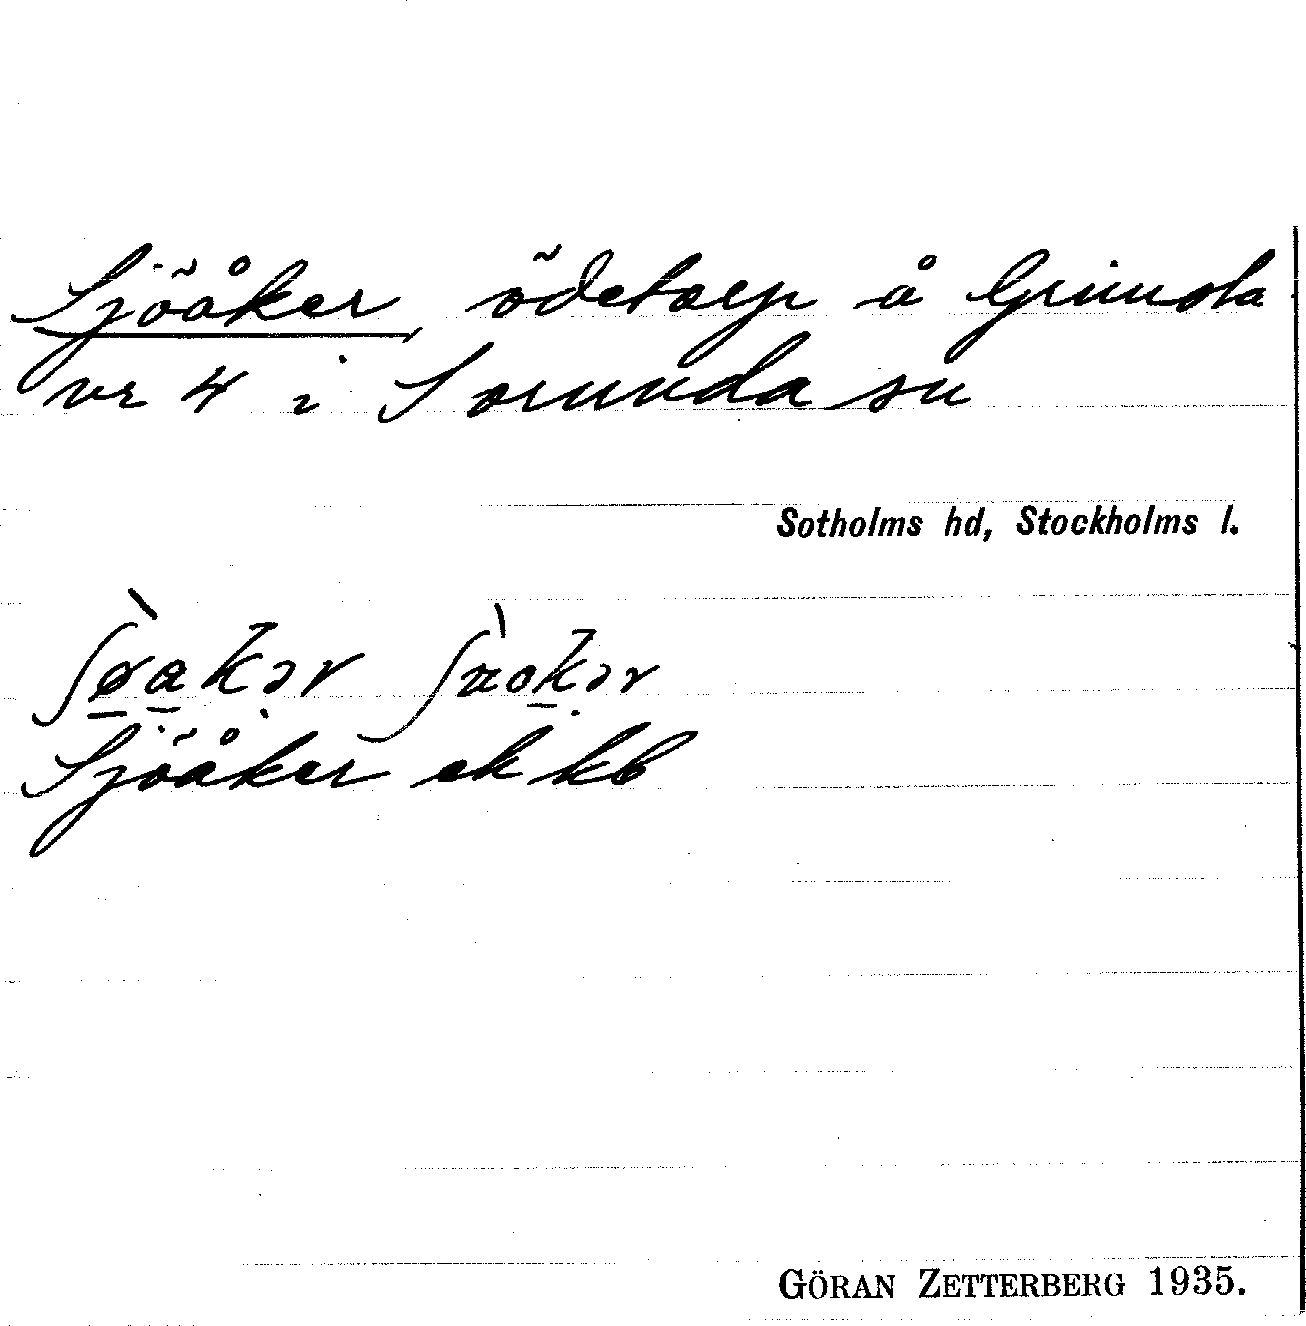 Sjöåker, ödetorp å Grimsta
nr 4 i Sorunda sn
Sotholms hd, Stockholms l.
Sjöåker ek kb
GÖRAN ZETTERBERG 1935.